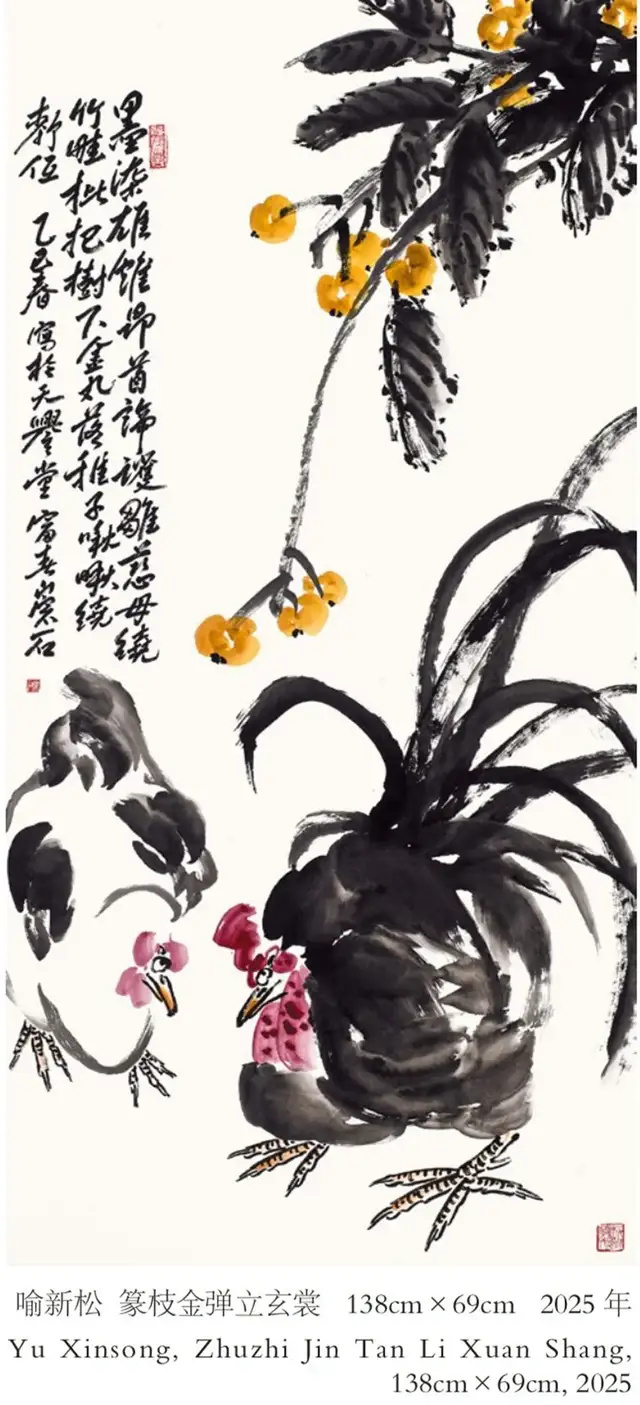 墨染雄雉昂首護雛慈母繞
竹畦枇杷樹下金丸落稚子啾啾繞
低 乙巳春寫於天譽堂富春石
喻新松 篆枝金弹立玄裳 138cm×69cm 2025 年
Yu Xinsong, Zhuzhi Jin Tan Li Xuan Shang,
138cm×69cm, 2025